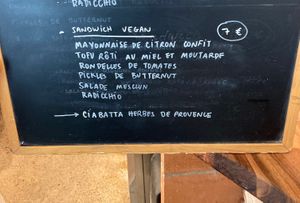 RADICCHIO
- SANDWICH VEGAN 7 €
MAYONNAISE DE CITRON CONFIT
TOFU RÔTI AU MIEL ET MOUTARDE
RONDELLES DE TOMATES
PICKLES DE BUTTERNUT
SALADE MESCLUN
RADICCHIO
→ CIABATTA HERBES DE PROVENCE